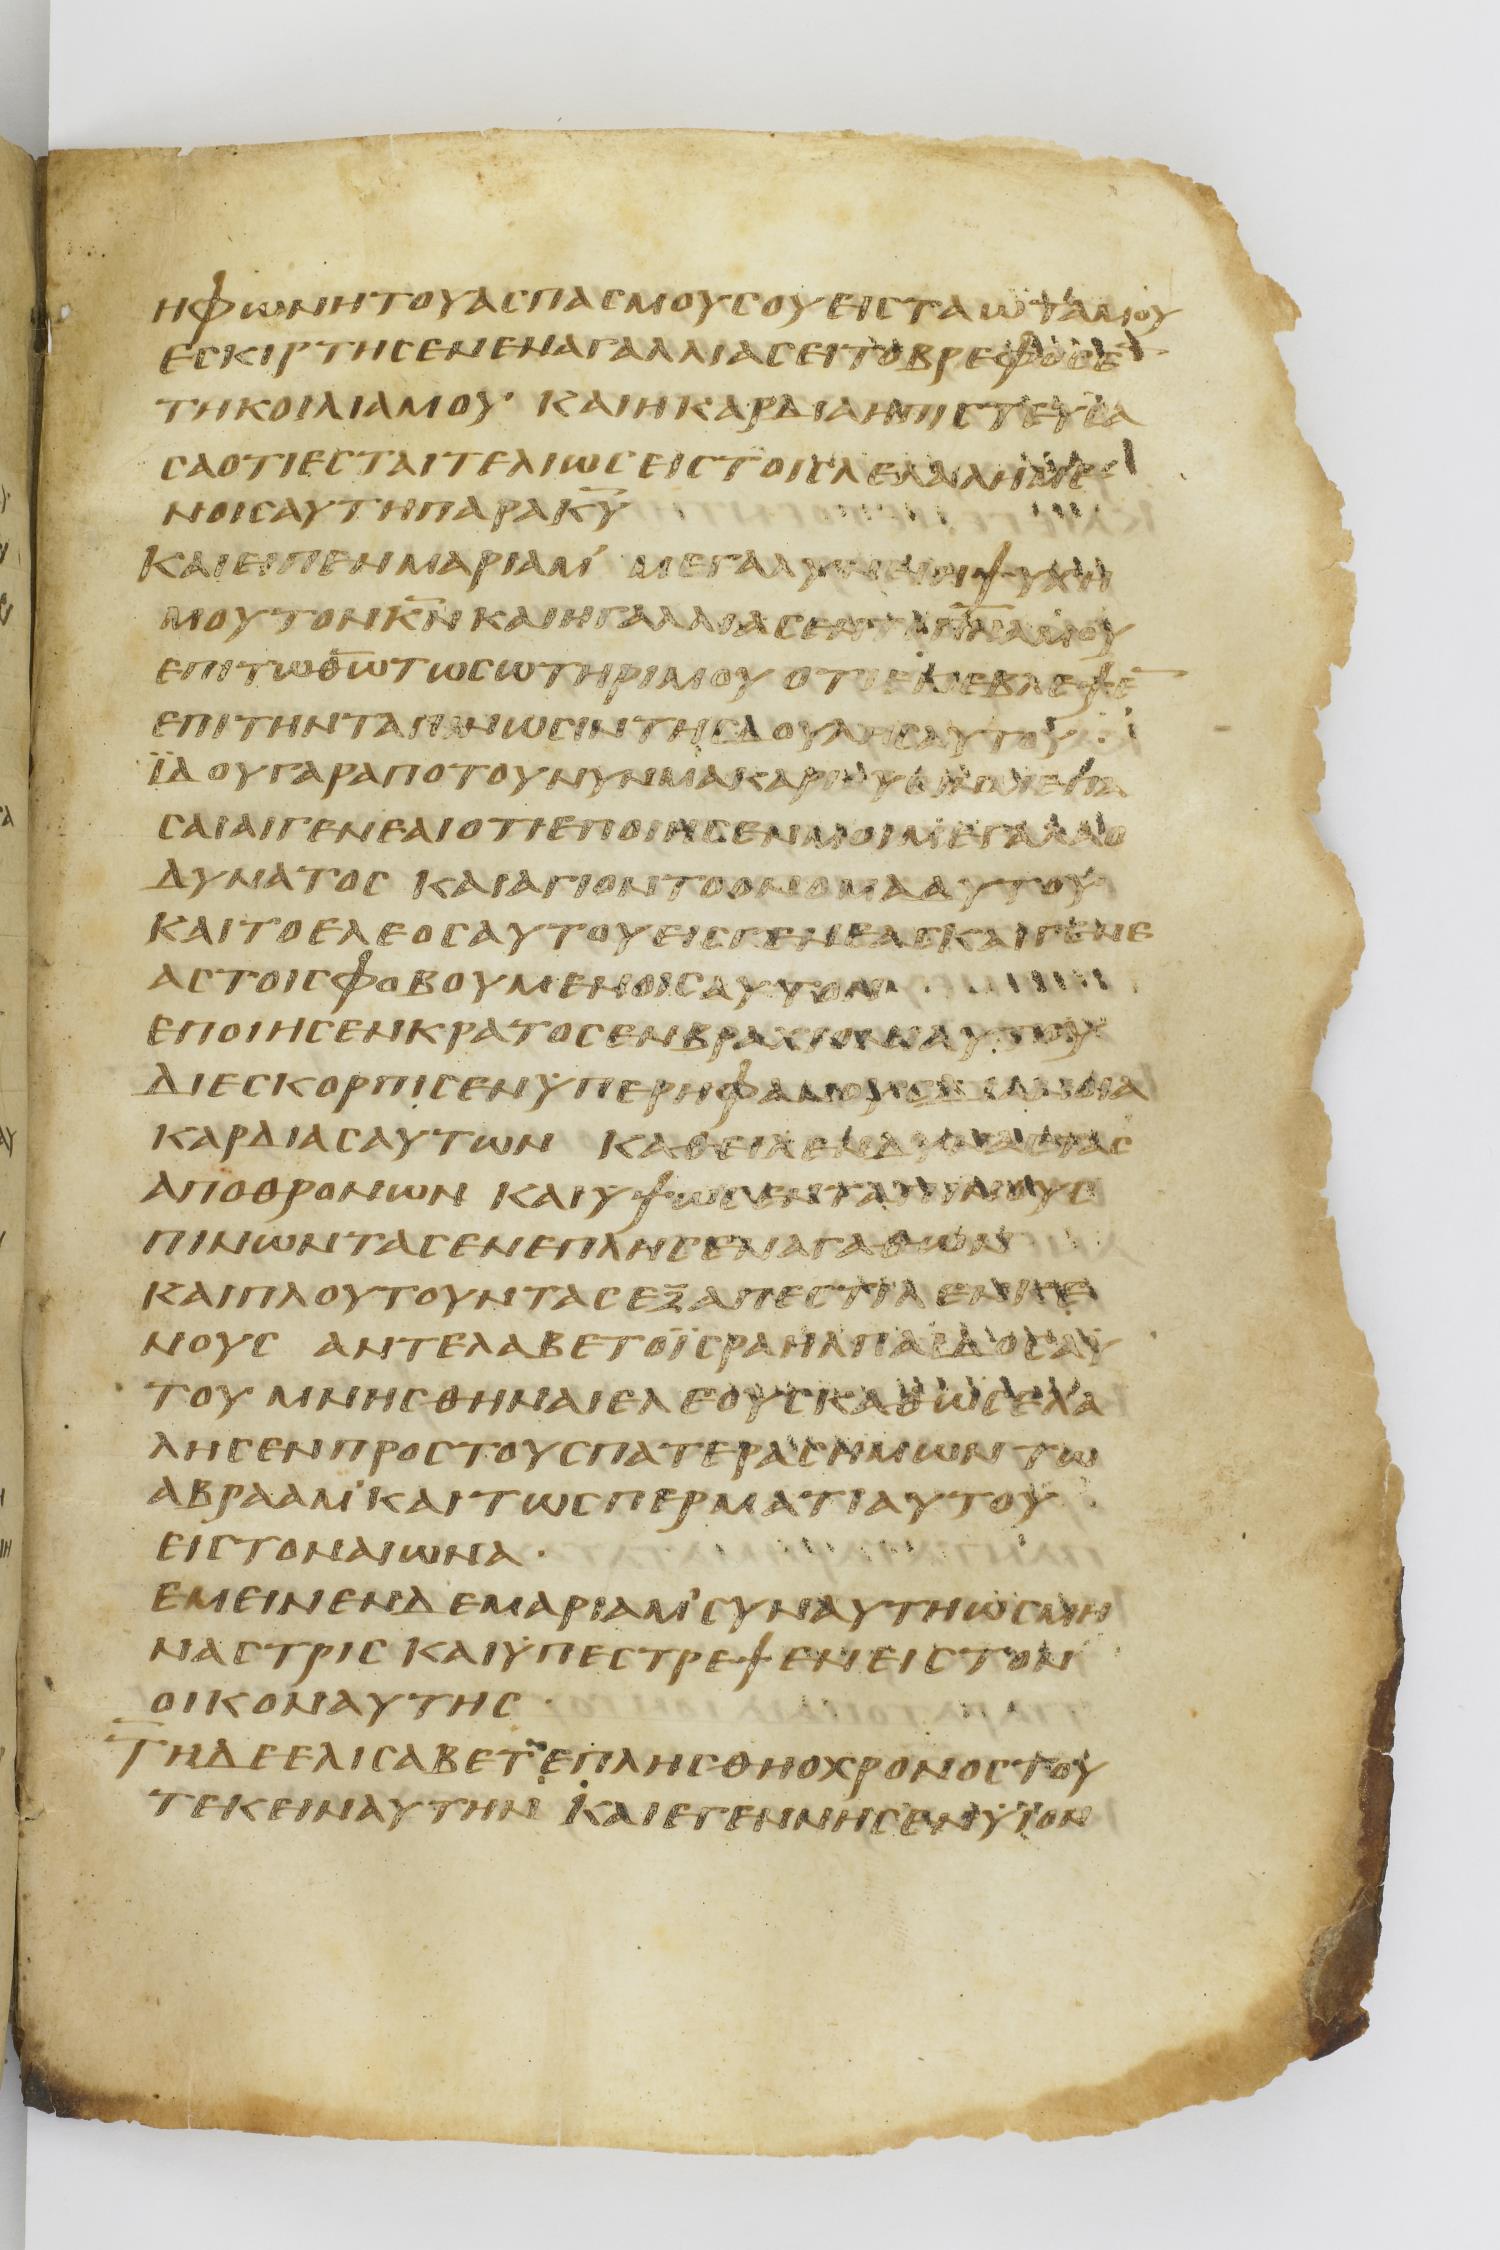 ΗΦΩΝΗΤΟΥΑΣΠΑΣΜΟΥΣΟΥΕΙΣΤΑΩΤΑΜΟΥ
ΕΣΚΙΡΤΗΣΕΝΕΝΑΓΑΛΛΙΑΣΕΙΤΟΒΡΕΦΟΣΕ̅
ΤΗΚΟΙΛΙΑΜΟΥ ΚΑΙΗΚΑΡΔΙΑΗΠΙΣΤΕΥΣΑ
ΣΑΟΤΙΕΣΤΑΙΤΕΛΙΩΣΕΙΣΤΟΙΣΛΕΛΑΛΗΜΕ
ΝΟΙΣΑΥΤΗΠΑΡΑΚ̅Υ̅
ΚΑΙΕΙΠΕΝΜΑΡΙΑΜ' ΜΕΓΑΛΥΝΕΙΗΨΥΧΗ
ΜΟΥΤΟΝΚ̅Ν̅ΚΑΙΗΓΑΛΛΙΑΣΕΝΤΟΠ̅Ν̅Α̅ΜΟΥ
ΕΠΙΤΩΘ̅Ω̅ΤΩΣΩΤΗΡΙΜΟΥ ΟΤΙΕΠΕΒΛΕΨΕ̅
ΕΠΙΤΗΝΤΑΠΙΝΩΣΙΝΤΗΣΔΟΥΛΗΣΑΥΤΟΥ
ΪΔΟΥΓΑΡΑΠΟΤΟΥΝΥΝΜΑΚΑΡΙΟΥΣΙΝΜΕΠΑ
ΣΑΙΑΙΓΕΝΕΑΙΟΤΙΕΠΟΙΗΣΕΝΜΟΙΜΕΓΑΛΑΟ
ΔΥΝΑΤΟΣ ΚΑΙΑΓΙΟΝΤΟΟΝΟΜΑΑΥΤΟΥ
ΚΑΙΤΟΕΛΕΟΣΑΥΤΟΥΕΙΣΓΕΝΕΑΣΚΑΙΓΕΝΕ
ΑΣΤΟΙΣΦΟΒΟΥΜΕΝΟΙΣΑΥΤΟΝ
ΕΠΟΙΗΣΕΝΚΡΑΤΟΣΕΝΒΡΑΧΙΟΝΙΑΥΤΟΥ
ΔΙΕΣΚΟΡΠΙΣΕΝΫΠΕΡΗΦΑΝΟΥΣΔΙΑΝΟΙΑ
ΚΑΡΔΙΑΣΑΥΤΩΝ ΚΑΘΕΙΛΕΝΔΥΝΑΣΤΑΣ
ΑΠΟΘΡΟΝΩΝ ΚΑΙΥΨΩΣΕΝΤΑΠΙΝΟΥΣ
ΠΙΝΩΝΤΑΣΕΝΕΠΛΗΣΕΝΑΓΑΘΩΝ
ΚΑΙΠΛΟΥΤΟΥΝΤΑΣΕΞΑΠΕΣΤΙΛΕΝΚΕ
ΝΟΥΣ ΑΝΤΕΛΑΒΕΤΟΪΣΡΑΗΛΠΑΙΔΟΣΑΥ
ΤΟΥ ΜΝΗΣΘΗΝΑΙΕΛΕΟΥΣΚΑΘΩΣΕΛΑ
ΛΗΣΕΝΠΡΟΣΤΟΥΣΠΑΤΕΡΑΣΗΜΩΝΤΩ
ΑΒΡΑΑΜ'ΚΑΙΤΩΣΠΕΡΜΑΤΙΑΥΤΟΥ
ΕΙΣΤΟΝΑΙΩΝΑ·
ΕΜΕΙΝΕΝΔΕΜΑΡΙΑΜ'ΣΥΝΑΥΤΗΩΣΜΗ
ΝΑΣΤΡΙΣ ΚΑΙΫΠΕΣΤΡΕΨΕΝΕΙΣΤΟΝ
ΟΙΚΟΝΑΥΤΗΣ·
ΤΗΔΕΕΛΙΣΑΒΕΤ'ΕΠΛΗΣΘΗΟΧΡΟΝΟΣΤΟΥ
ΤΕΚΕΙΝΑΥΤΗΝ ΚΑΙΕΓΕΝΝΗΣΕΝΫΙΟΝ